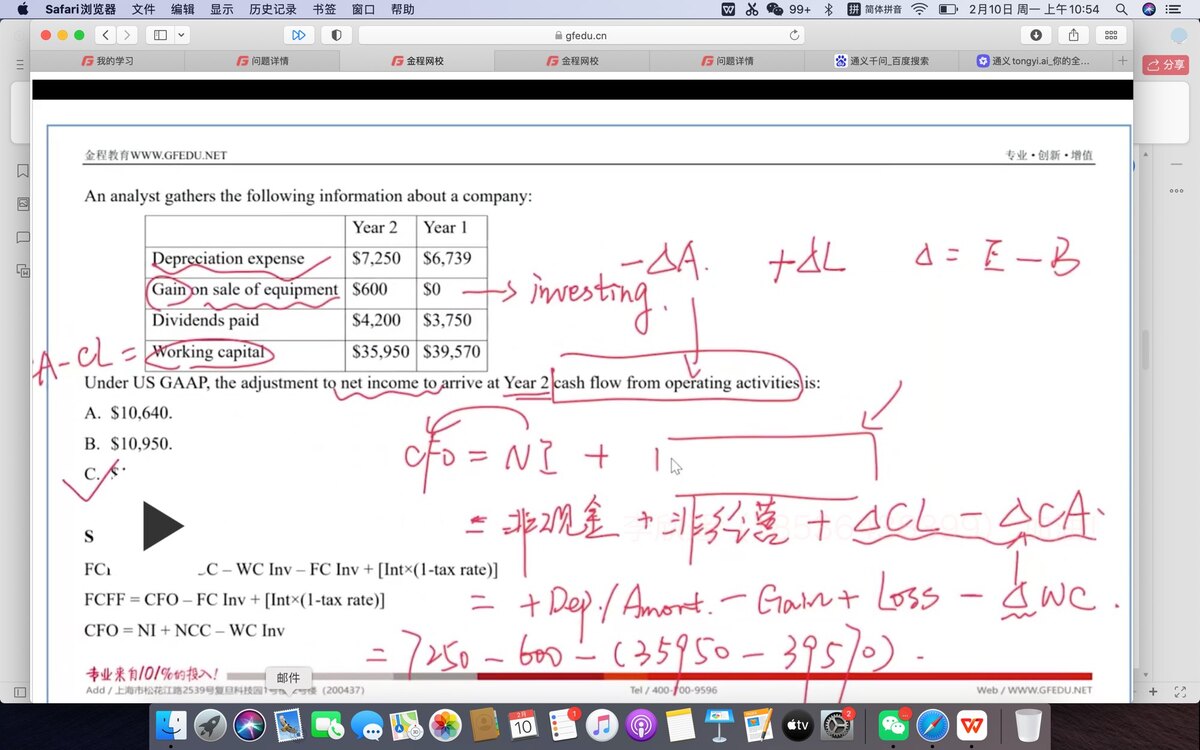 Safari浏览器 文件 编辑 显示 历史记录 书签 窗口 帮助 99+ 拼 简体拼音 2月10日 周一 上午10:54
gfedu.cn
我的学习 问题详情 金程网校 金程网校 问题详情 通义千问_百度搜索 通义tongyi.ai_你的全... 分享
金程教育WWW.GFEDU.NET 专业・创新・增值
An analyst gathers the following information about a company:
Year 2 Year 1
Depreciation expense $7,250 $6,739
-ΔA. +ΔL Δ = E - B
Gain on sale of equipment $600 $0 → investing.
Dividends paid $4,200 $3,750
A-CL = Working capital $35,950 $39,570
Under US GAAP, the adjustment to net income to arrive at Year 2 cash flow from operating activities is:
A. $10,640.
B. $10,950.
CFO = NI +
C.
= 非现金 + 非经营 + ΔCL - ΔCA.
S
C – WC Inv – FC Inv + [Int×(1-tax rate)]
FCFF = CFO – FC Inv + [Int×(1-tax rate)]
= + Dep./Amort. - Gain + Loss - ΔWC.
CFO = NI + NCC – WC Inv
= 7250 - 600 - (35950 - 39570).
专业来自101%的投入!
邮件
Add / 上海市松花江路2539号复旦科技园1号楼 (200437) Tel / 400-700-9596 Web / WWW.GFEDU.NET
2月
10
1
tv
2